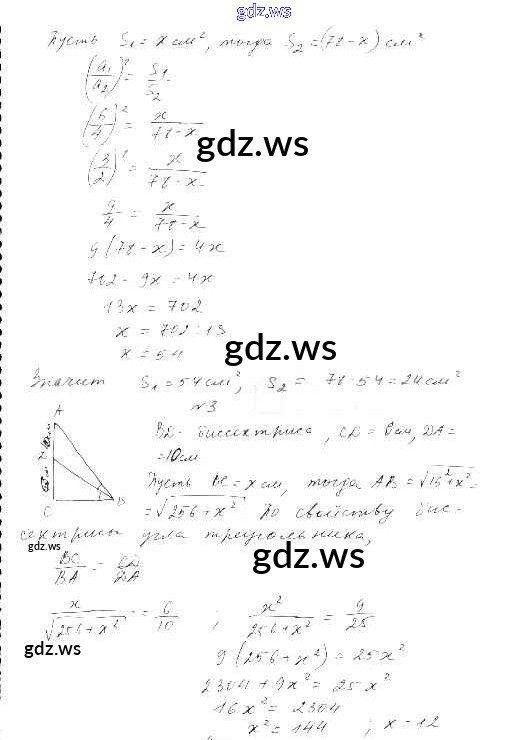 gdz.ws
Пусть S₁ = x см², тогда S₂ = (78 - x) см²
(a₁/a₂)² = S₁/S₂
(6/4)² = x/78-x
gdz.ws
(3/2)² = x/78-x
9/4 = x/78-x
9(78-x) = 4x
702 - 9x = 4x
13x = 702
x = 702 : 13
x = 54
gdz.ws
Значит S₁ = 54 см², S₂ = 78 - 54 = 24 см²
№3
BD - биссектриса, CD = 6 см, DA =
= 10 см
Пусть BC = x см, тогда AB = √16² + x² =
= √256 + x² По свойству бис-
сектрисы угла треугольника,
A
D
C
B
gdz.ws
gdz.ws
BC/BA = CD/DA
x/√256 + x² = 6/10 ; x²/256 + x² = 9/25
gdz.ws
gdz.ws
9(256 + x²) = 25x²
2304 + 9x² = 25x²
16x² = 2304
x² = 144 ; x = 12